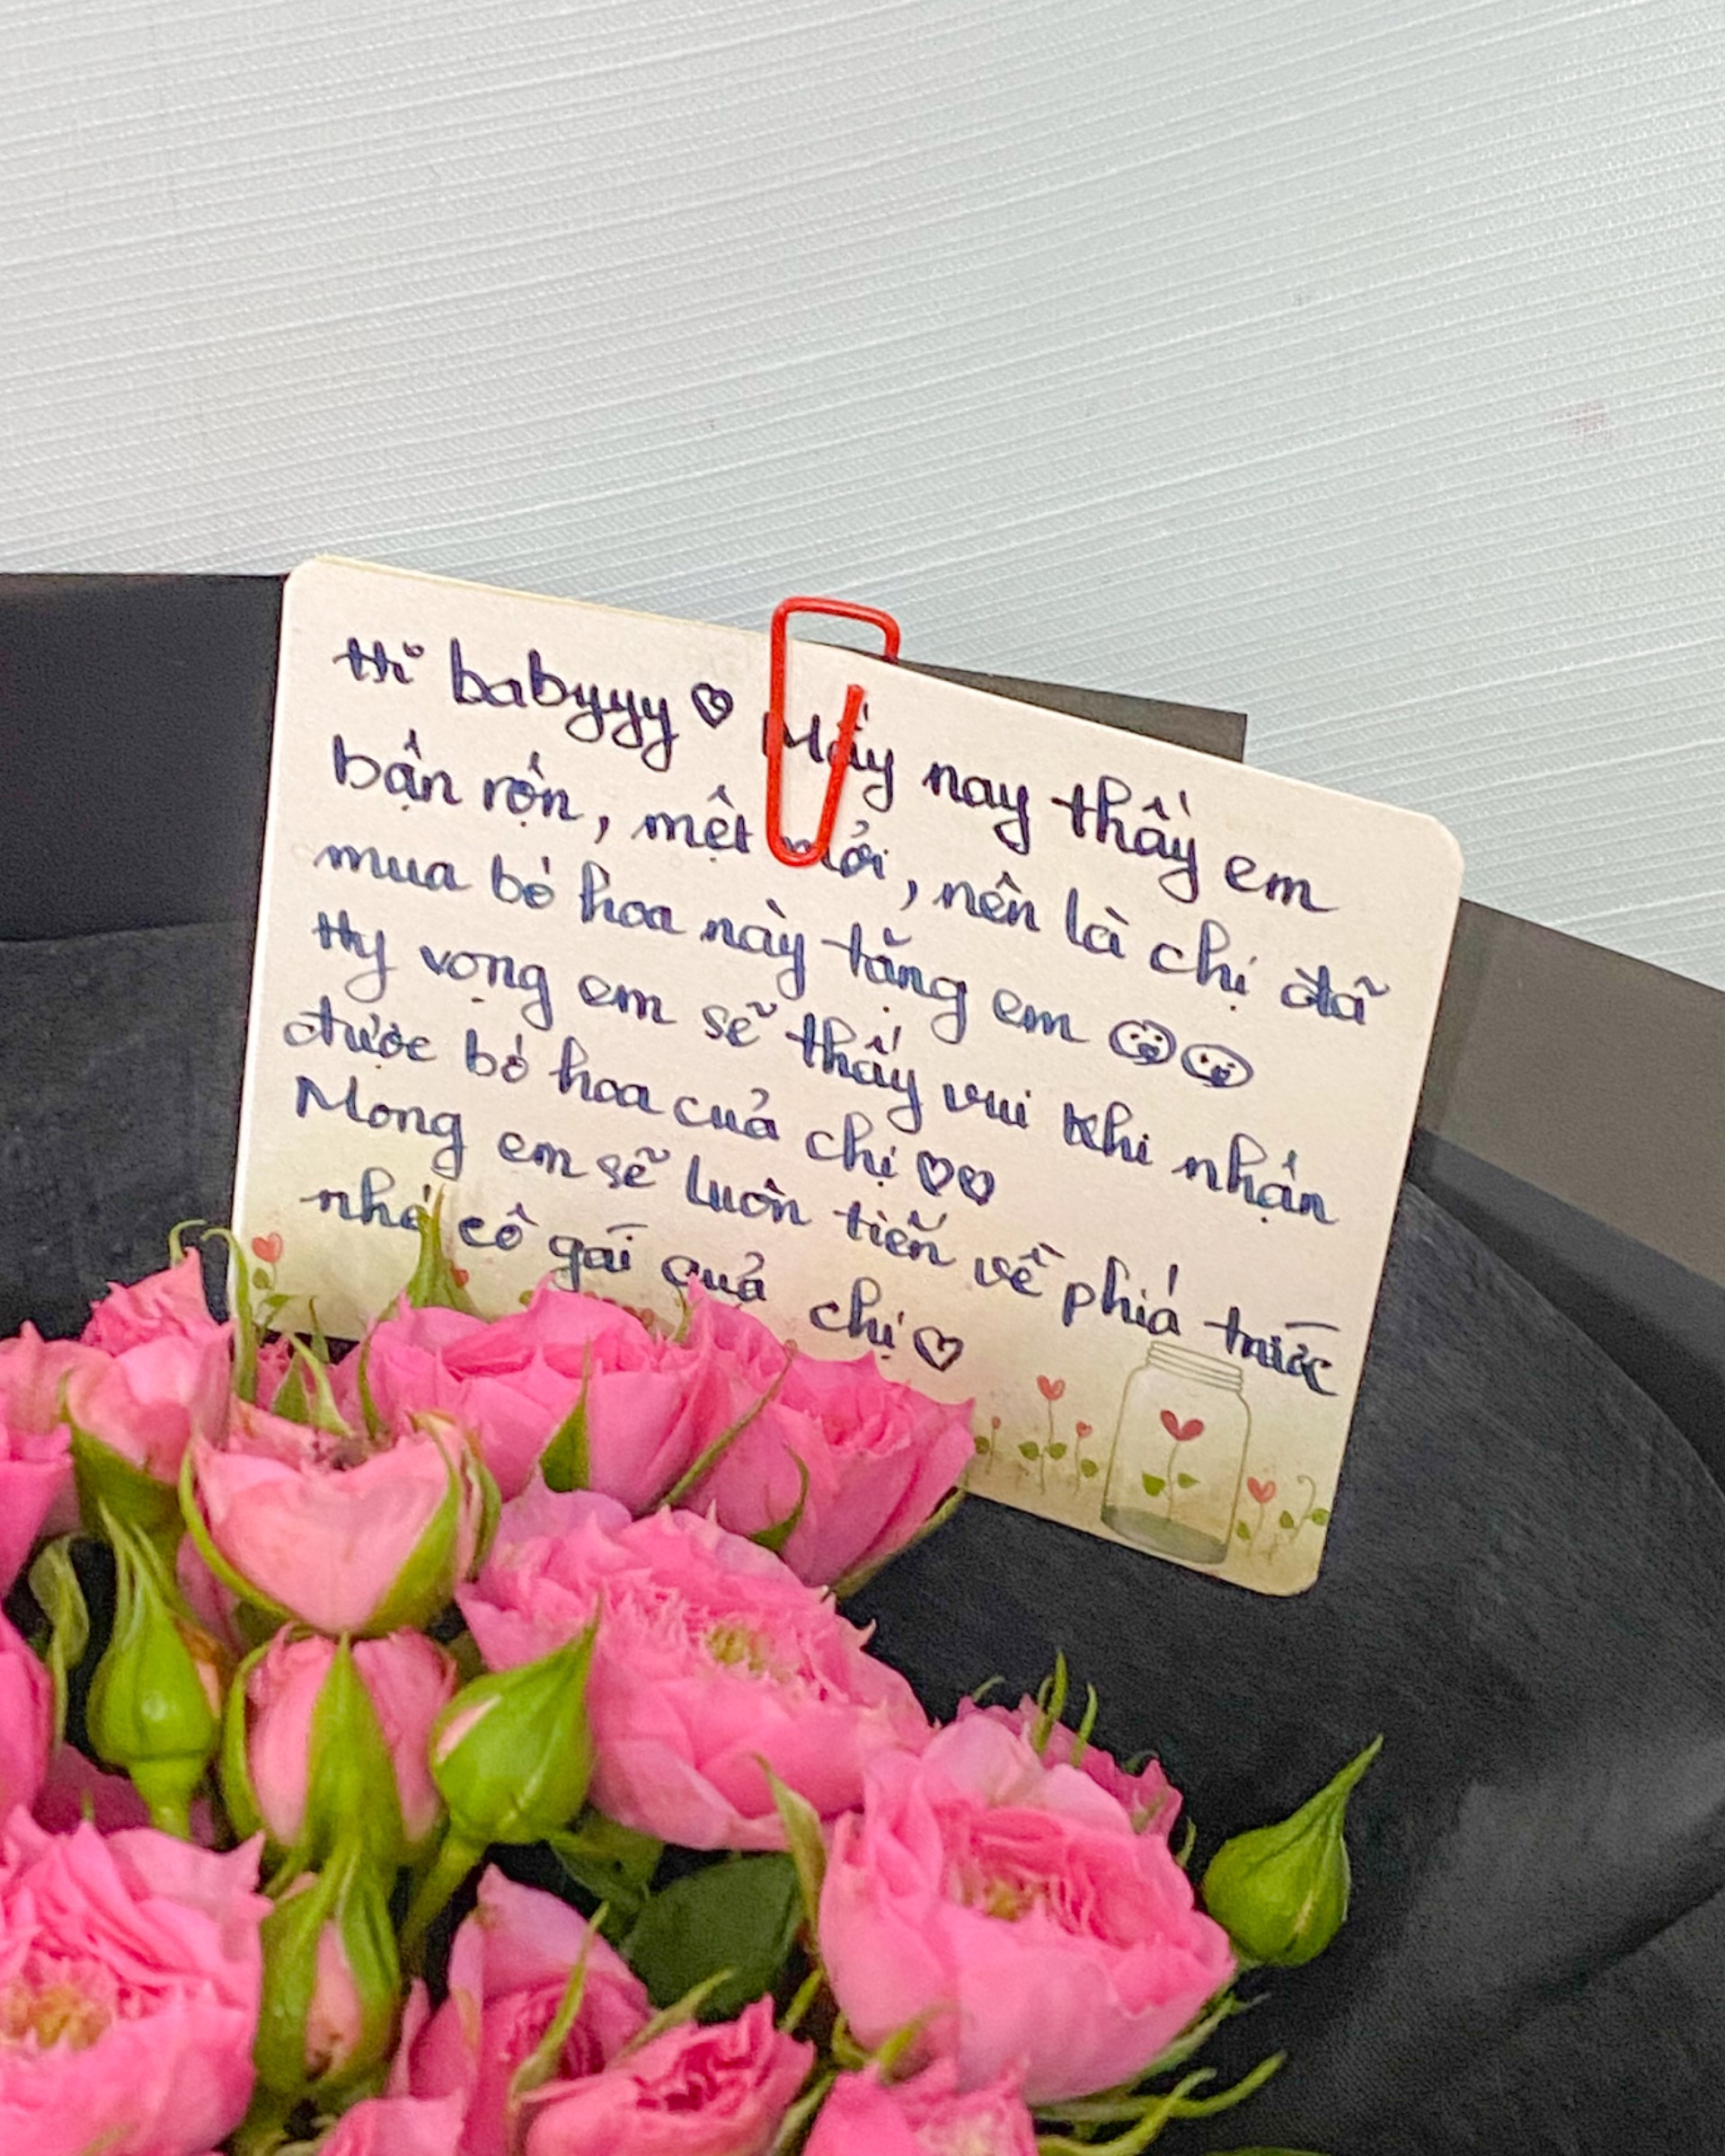 Hi babyyy ♡ Mấy nay thấy em
bận rộn, mệt mỏi, nên là chị đã
mua bó hoa này tặng em
Hy vọng em sẽ thấy vui khi nhận
được bó hoa của chị ♡♡
Mong em sẽ luôn tiến về phía trước
nhé cô gái quả chị ♡